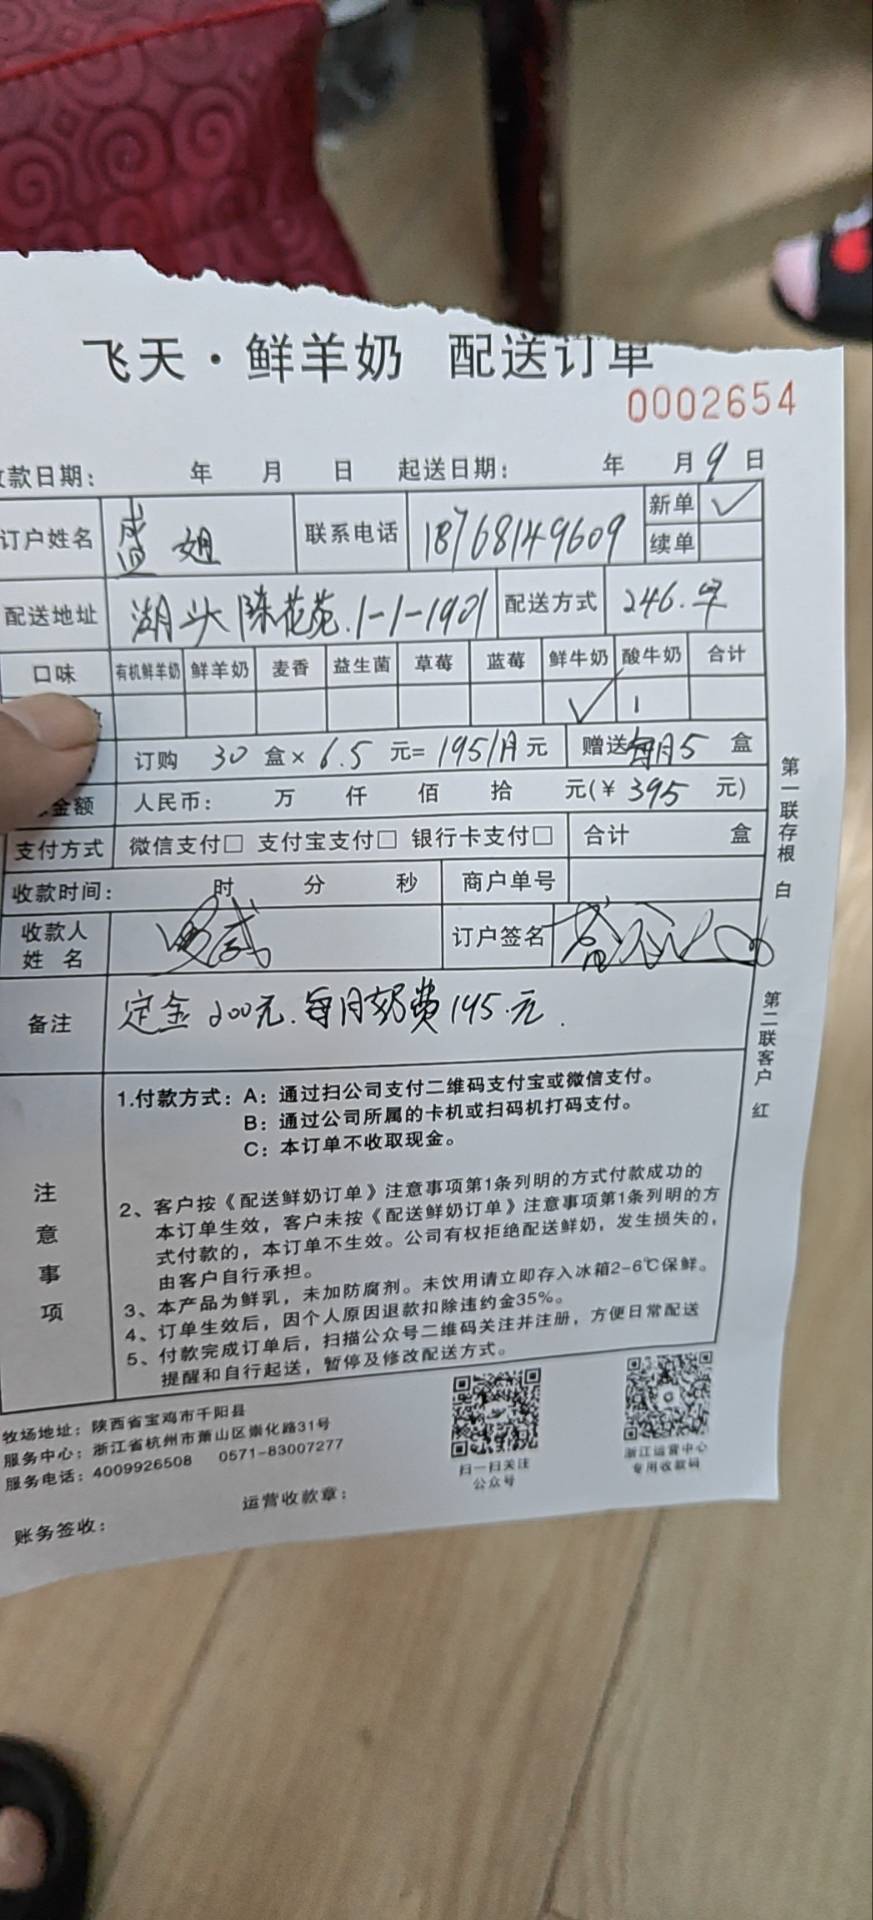 飞天·鲜羊奶 配送订单
0002654
款日期： 年 月 日 起送日期： 年 月 9 日
订户姓名 盛姐 联系电话 18768149609 新单 ✓
续单
配送地址 湖头陈花苑.1-1-1901 配送方式 246.
口味 有机鲜羊奶 鲜羊奶 麦香 益生菌 草莓 蓝莓 鲜牛奶 酸牛奶 合计
✓
订购 30 盒× 6.5 元= 195/月 元 赠送每月5 盒
金额 人民币： 万 仟 佰 拾 元(¥ 395 元)
支付方式 微信支付□ 支付宝支付□ 银行卡支付□ 合计 盒
收款时间： 时 分 秒 商户单号
收款人姓名 订户签名
备注 定金200元.每月奶费195.元.
注意事项
1.付款方式：A：通过扫公司支付二维码支付宝或微信支付。
B：通过公司所属的卡机或扫码机打码支付。
C：本订单不收取现金。
2、客户按《配送鲜奶订单》注意事项第1条列明的方式付款成功的
本订单生效，客户未按《配送鲜奶订单》注意事项第1条列明的方
式付款的，本订单不生效。公司有权拒绝配送鲜奶，发生损失的，
由客户自行承担。
3、本产品为鲜乳，未加防腐剂。未饮用请立即存入冰箱2-6℃保鲜。
4、订单生效后，因个人原因退款扣除违约金35%。
5、付款完成订单后，扫描公众号二维码关注并注册，方便日常配送
提醒和自行起送，暂停及修改配送方式。
第一联存根 白
第二联客户 红
牧场地址：陕西省宝鸡市千阳县
服务中心：浙江省杭州市萧山区崇化路31号
服务电话：4009926508 0571-83007277
扫一扫关注
公众号
浙江运营中心
专用收款码
运营收款章：
账务签收：